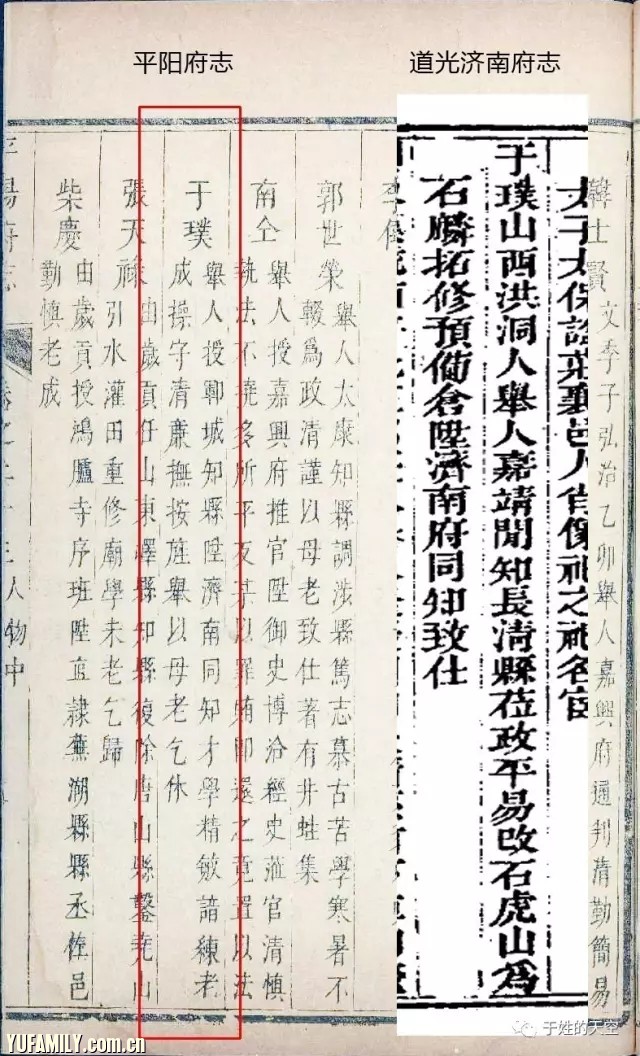 平阳府志
道光济南府志
韓士賢 文季子弘治乙卯舉人嘉興府通判清勤簡易
太子太保諡莊襄邑人肖像祀之祀名宦
于璞山西洪洞人舉人嘉靖間知長清縣莅政平易改石虎山為
石麟拓修預備倉陞濟南府同知致仕
郭世榮 舉人太康知縣調涉縣篤志慕古苦學寒暑不
輟為政清謹以母老致仕著有井蛙集
南仝 舉人授嘉興府推官陞御史博洽經史蒞官清慎
執法不撓多所平反某以罪賄卽還之竟置以法
于璞 舉人授鄆城知縣陞濟南同知才學精敏諳練老
成操字清廉撫按旌舉以母老乞休
張天祿 由歲貢任山東嶧縣知縣復除唐山縣鑿堯山
引水灌田重修廟學未老乞歸
柴慶 由歲貢授鴻臚寺序班陞直隸蕪湖縣縣丞佐邑
勤慎老成
平陽府志 卷之二十三人物中
YUFAMILY.com.cn
于姓的天空